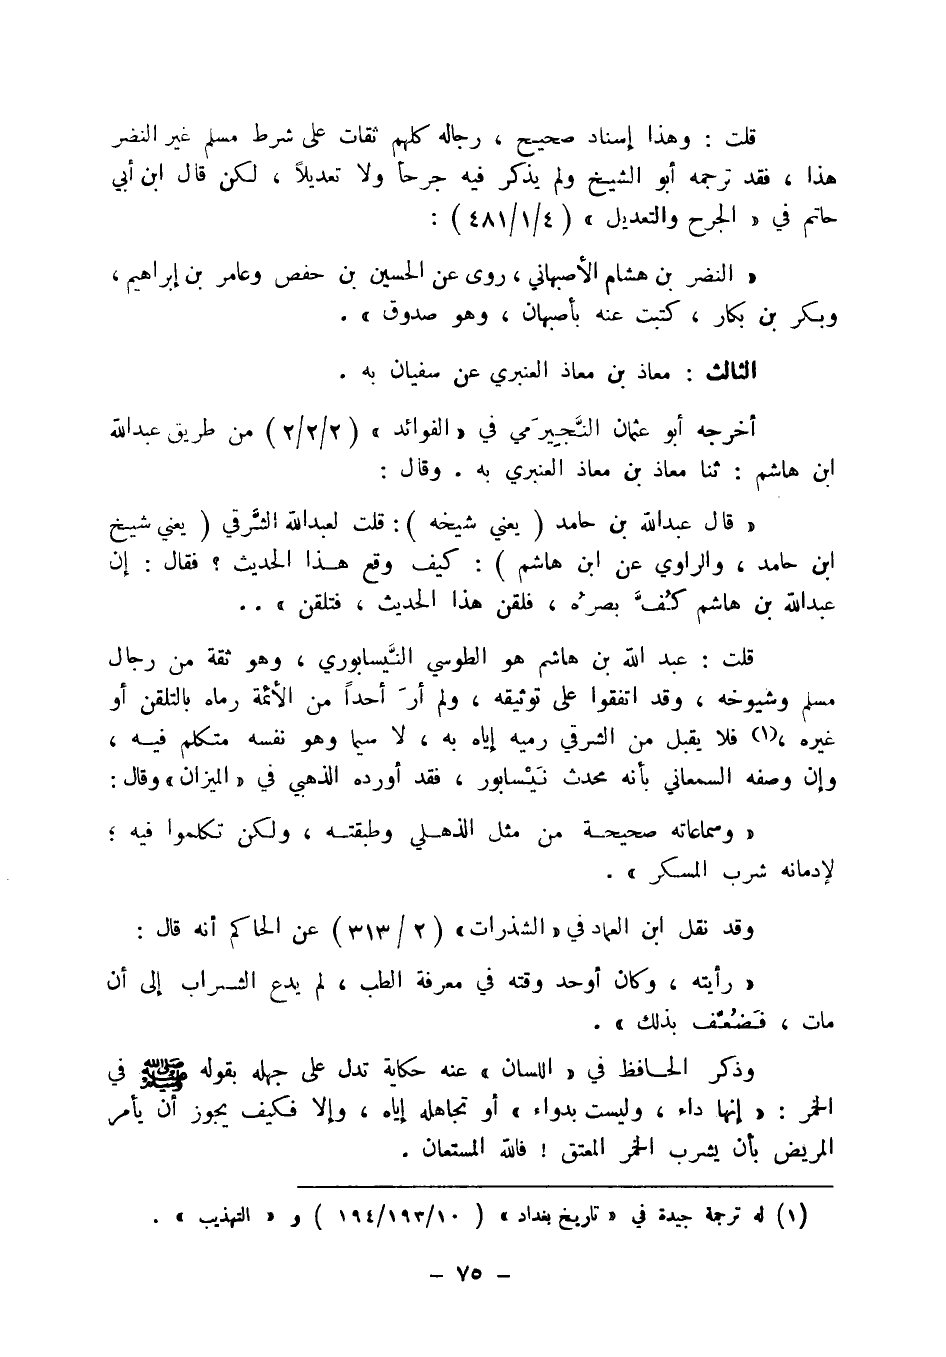 قلت : وهذا إسناد صحيح ، رجاله كلهم ثقات على شرط مسلم غير النضر
هذا ، فقد ترجمه أبو الشيخ ولم يذكر فيه جرحاً ولا تعديلاً ، لكن قال ابن أبي
حاتم في « الجرح والتعديل » ( ٤٨١/١/٤ ) :
« النضر بن هشام الأصبهاني ، روى عن الحسين بن حفص وعامر بن إبراهيم ،
وبكر بن بكار ، كتبت عنه بأصبهان ، وهو صدوق » .
الثالث : معاذ بن معاذ العنبري عن سفيان به .
أخرجه أبو عثمان النَّجِيرَمي في « الفوائد » ( ٢/٢/٢ ) من طريق عبدالله
ابن هاشم : ثنا معاذ بن معاذ العنبري به . وقال :
« قال عبدالله بن حامد ( يعني شيخه ) : قلت لعبدالله الشَّرقي ( يعني شيخ
ابن حامد ، والراوي عن ابن هاشم ) : كيف وقع هـذا الحديث ؟ فقال : إن
عبدالله بن هاشم كُفَّ بصرُه ، فلقن هذا الحديث ، فتلقن » . .
قلت : عبد الله بن هاشم هو الطوسي النَّيسابوري ، وهو ثقة من رجال
مسلم وشيوخه ، وقد اتفقوا على توثيقه ، ولم أرَ أحداً من الأئمة رماه بالتلقن أو
غيره ،(١) فلا يقبل من الشرقي رميه إياه به ، لا سيما وهو نفسه متكلم فيـه ،
وإن وصفه السمعاني بأنه محدث نَيْسابور ، فقد أورده الذهبي في « الميزان » وقال :
« وسماعاته صحيحـة من مثل الذهـلي وطبقتـه ، ولكن تكلموا فيه ؛
لإدمانه شرب المسكر » .
وقد نقل ابن العماد في « الشذرات » ( ٢ / ٣١٣ ) عن الحاكم أنه قال :
« رأيته ، وكان أوحد وقته في معرفة الطب ، لم يدع الشـراب إلى أن
مات ، فَضُعِّف بذلك » .
وذكر الحـافظ في « اللسان » عنه حكاية تدل على جهله بقوله ﷺ في
الخمر : « إنها داء ، وليست بدواء » أو تجاهله إياه ، وإلا فكيف يجوز أن يأمر
المريض بأن يشرب الخمر المعتق ! فالله المستعان .
(١) له ترجمة جيدة في « تاريخ بغداد » ( ١٩٤/١٩٣/١٠ ) و « التهذيب » .
– ٧٥ –